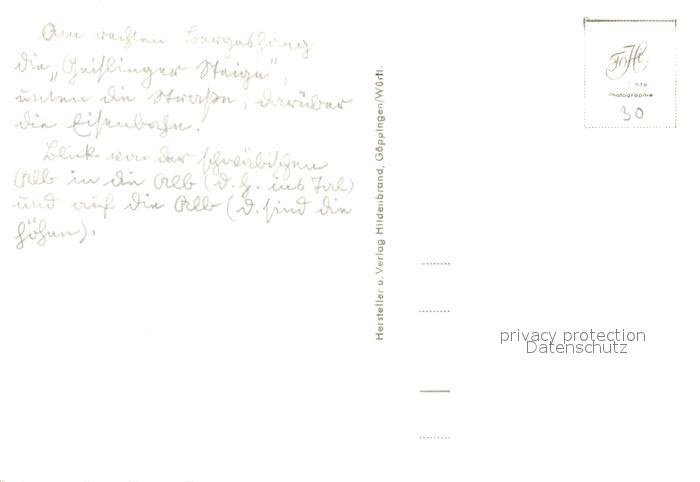 Am rechten Bergeshang
die „Geislinger Steige",
unten die Straße, darüber
die Eisenbahn.
Blick von der schwäbischen
Alb in die Alb (d. h. ins Tal)
und auf die Alb (d. sind die
Höhen).
Hersteller u. Verlag Hildenbrand, Göppingen/Württ.
hte
Photographie
30
privacy protection
Datenschutz